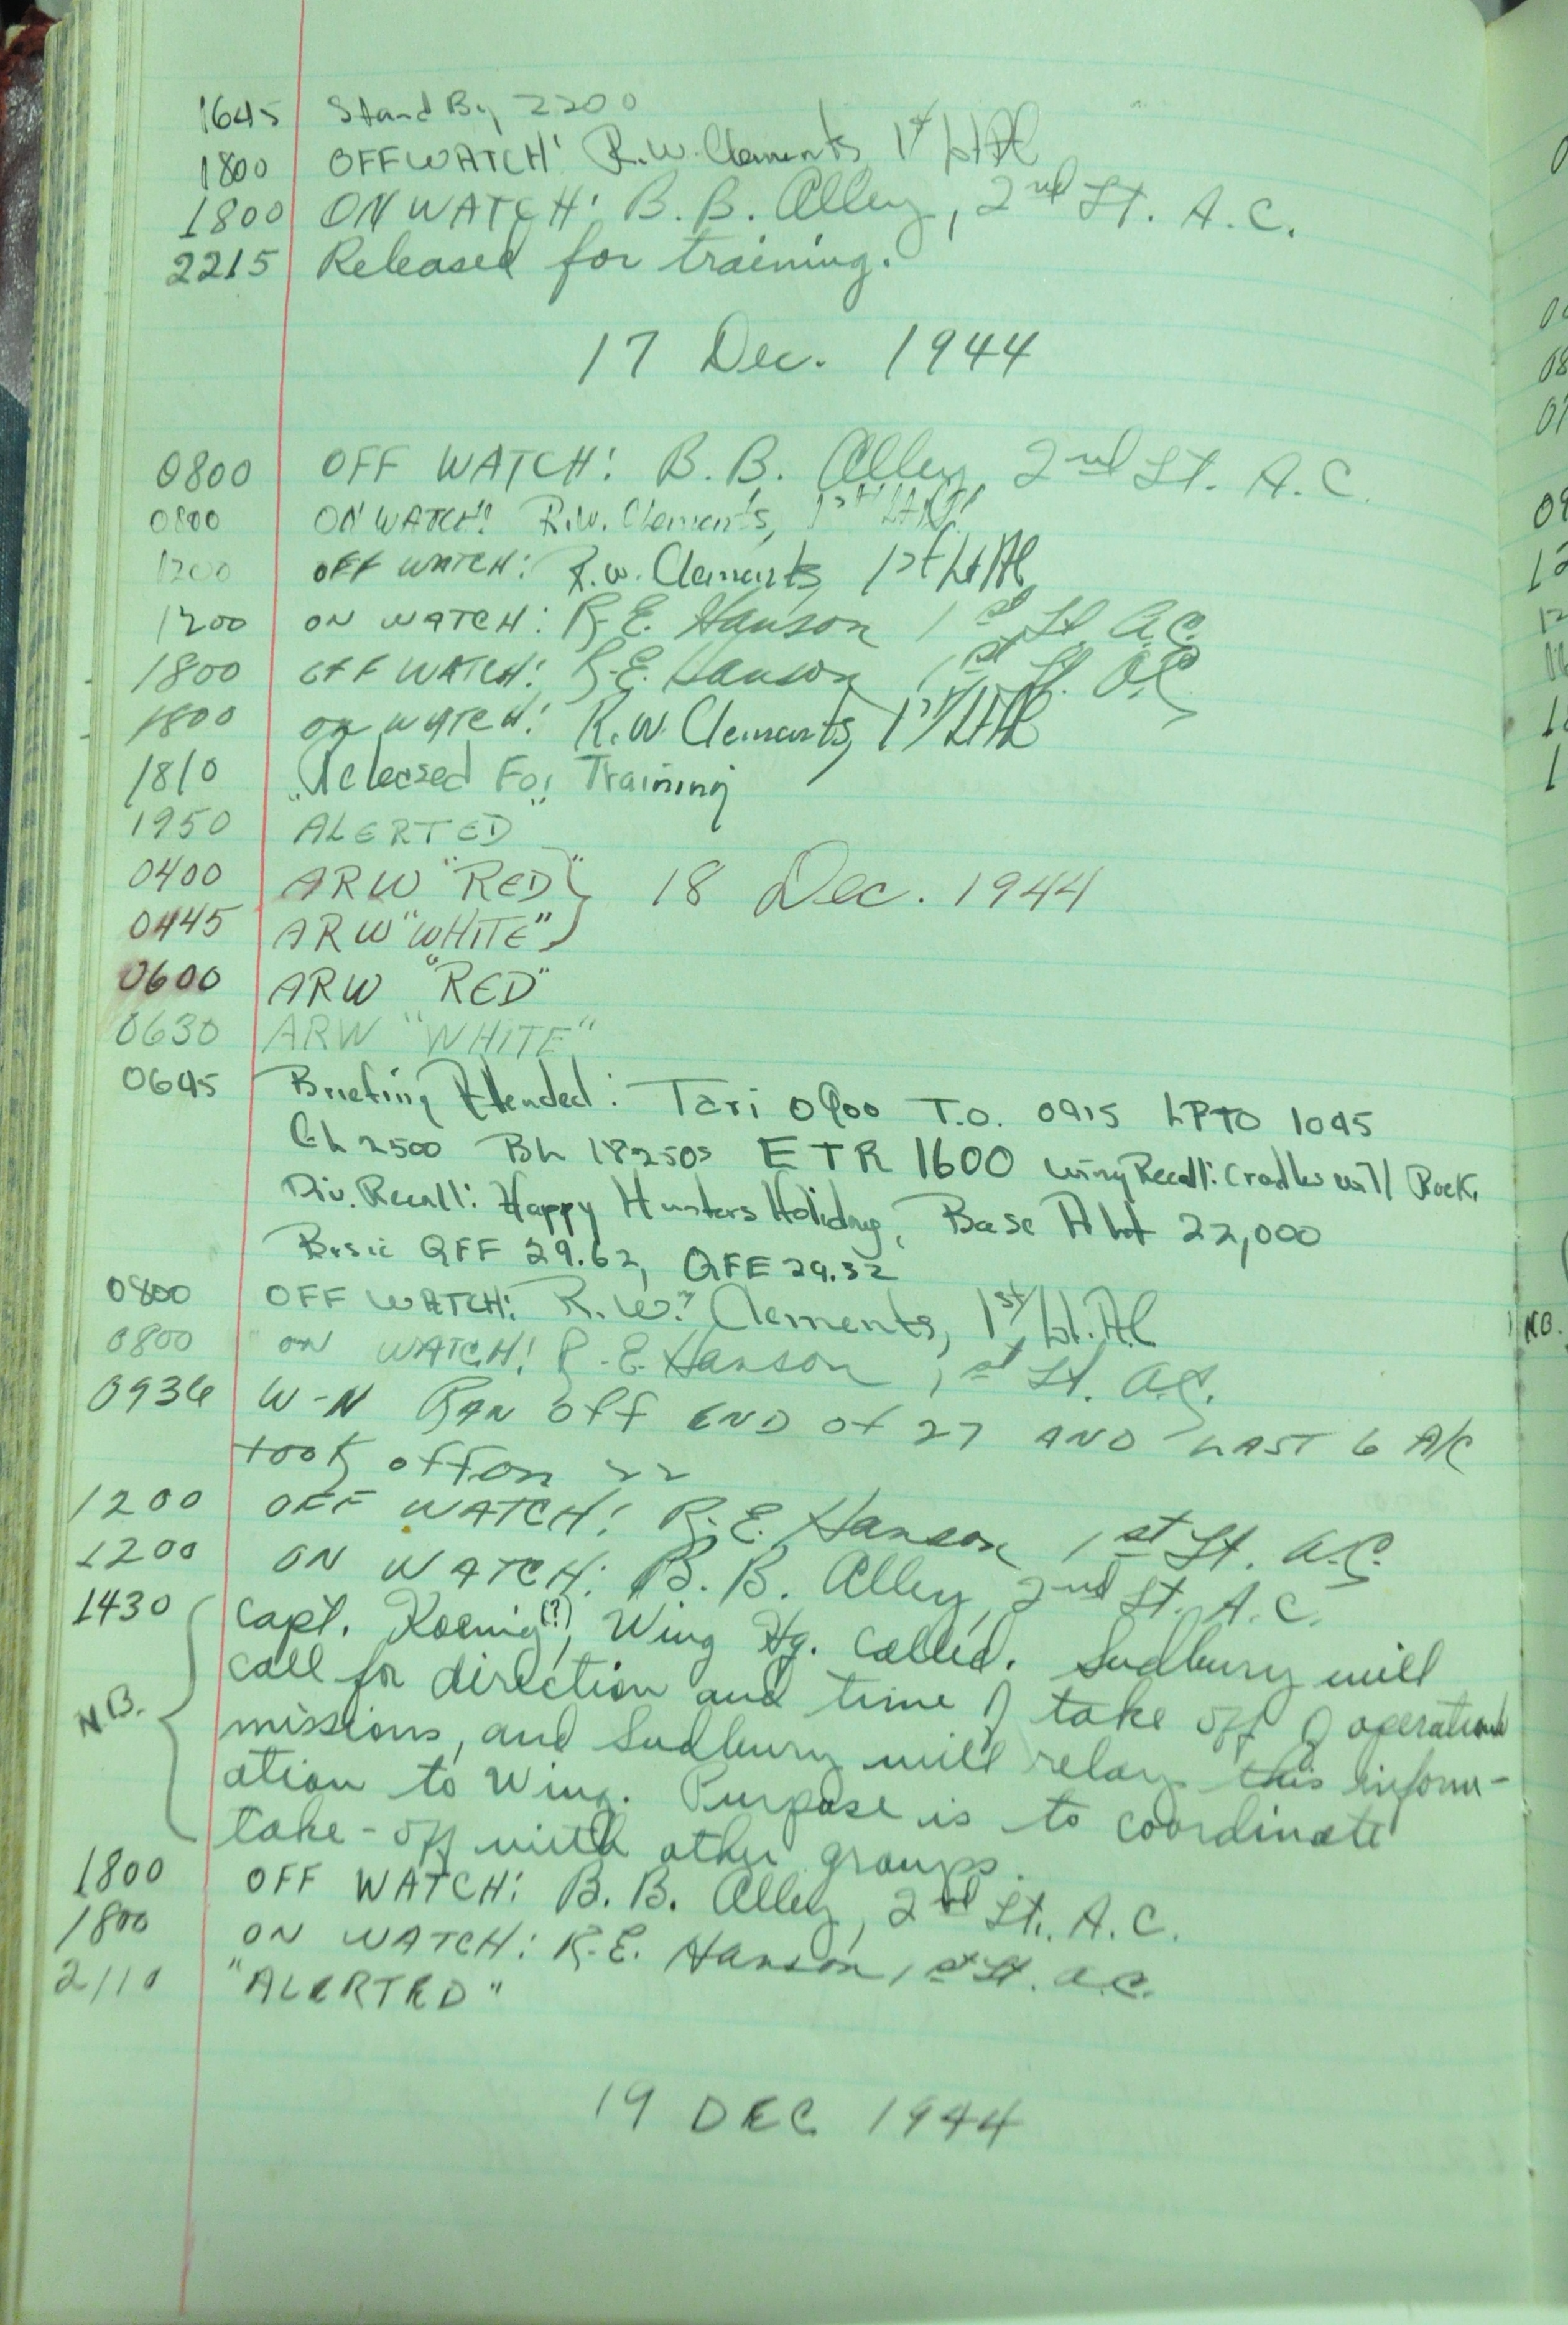 1645 Stand By 2200
1800 OFF WATCH: R.W. Clements, 1st Lt AC
1800 ON WATCH: B. B. Alley, 2nd Lt. A.C.
2215 Released for training.
17 Dec. 1944
0800 OFF WATCH: B. B. Alley, 2nd Lt. A.C.
0800 ON WATCH: R.W. Clements, 1st Lt AC
1200 OFF WATCH: R.W. Clements, 1st Lt AC
1200 ON WATCH: R.E. Hanson 1st Lt. A.C.
1800 OFF WATCH: R.E. Hanson 1st Lt. A.C.
1800 ON WATCH: R.W. Clements, 1st Lt AC
1810 Released For Training
1950 "ALERTED"
0400 ARW "RED" 18 Dec. 1944
0445 ARW "WHITE"
0600 ARW "RED"
0630 ARW "WHITE"
0645 Briefing Attended: Taxi 0900 T.O. 0915 LPTO 1045
GL 2500 BL 18250s ETR 1600 Wing Recall: Cradle will Rock,
Div. Recall: Happy Hunters Holiday, Base Alt 22,000
Basic QFF 29.62, QFE 29.32
0800 OFF WATCH: R.W. Clements, 1st Lt. AC
0800 ON WATCH: R.E. Hanson, 1st Lt. A.C.
0936 W-N RAN Off END Of 27 AND LAST 6 A/C
took off on 22
1200 OFF WATCH: R.E. Hanson 1st Lt. A.C.
1200 ON WATCH: B. B. Alley, 2nd Lt. A.C.
1430 Capt. Koenig(?), Wing Hq. called. Sudbury will
call for direction and time of take off of operational
N.B. missions, and Sudbury will relay this inform-
ation to Wing. Purpose is to coordinate
take-off with other groups.
1800 OFF WATCH: B. B. Alley, 2nd Lt. A.C.
1800 ON WATCH: R.E. Hanson, 1st Lt. A.C.
2110 "ALERTED"
19 DEC 1944
NB.